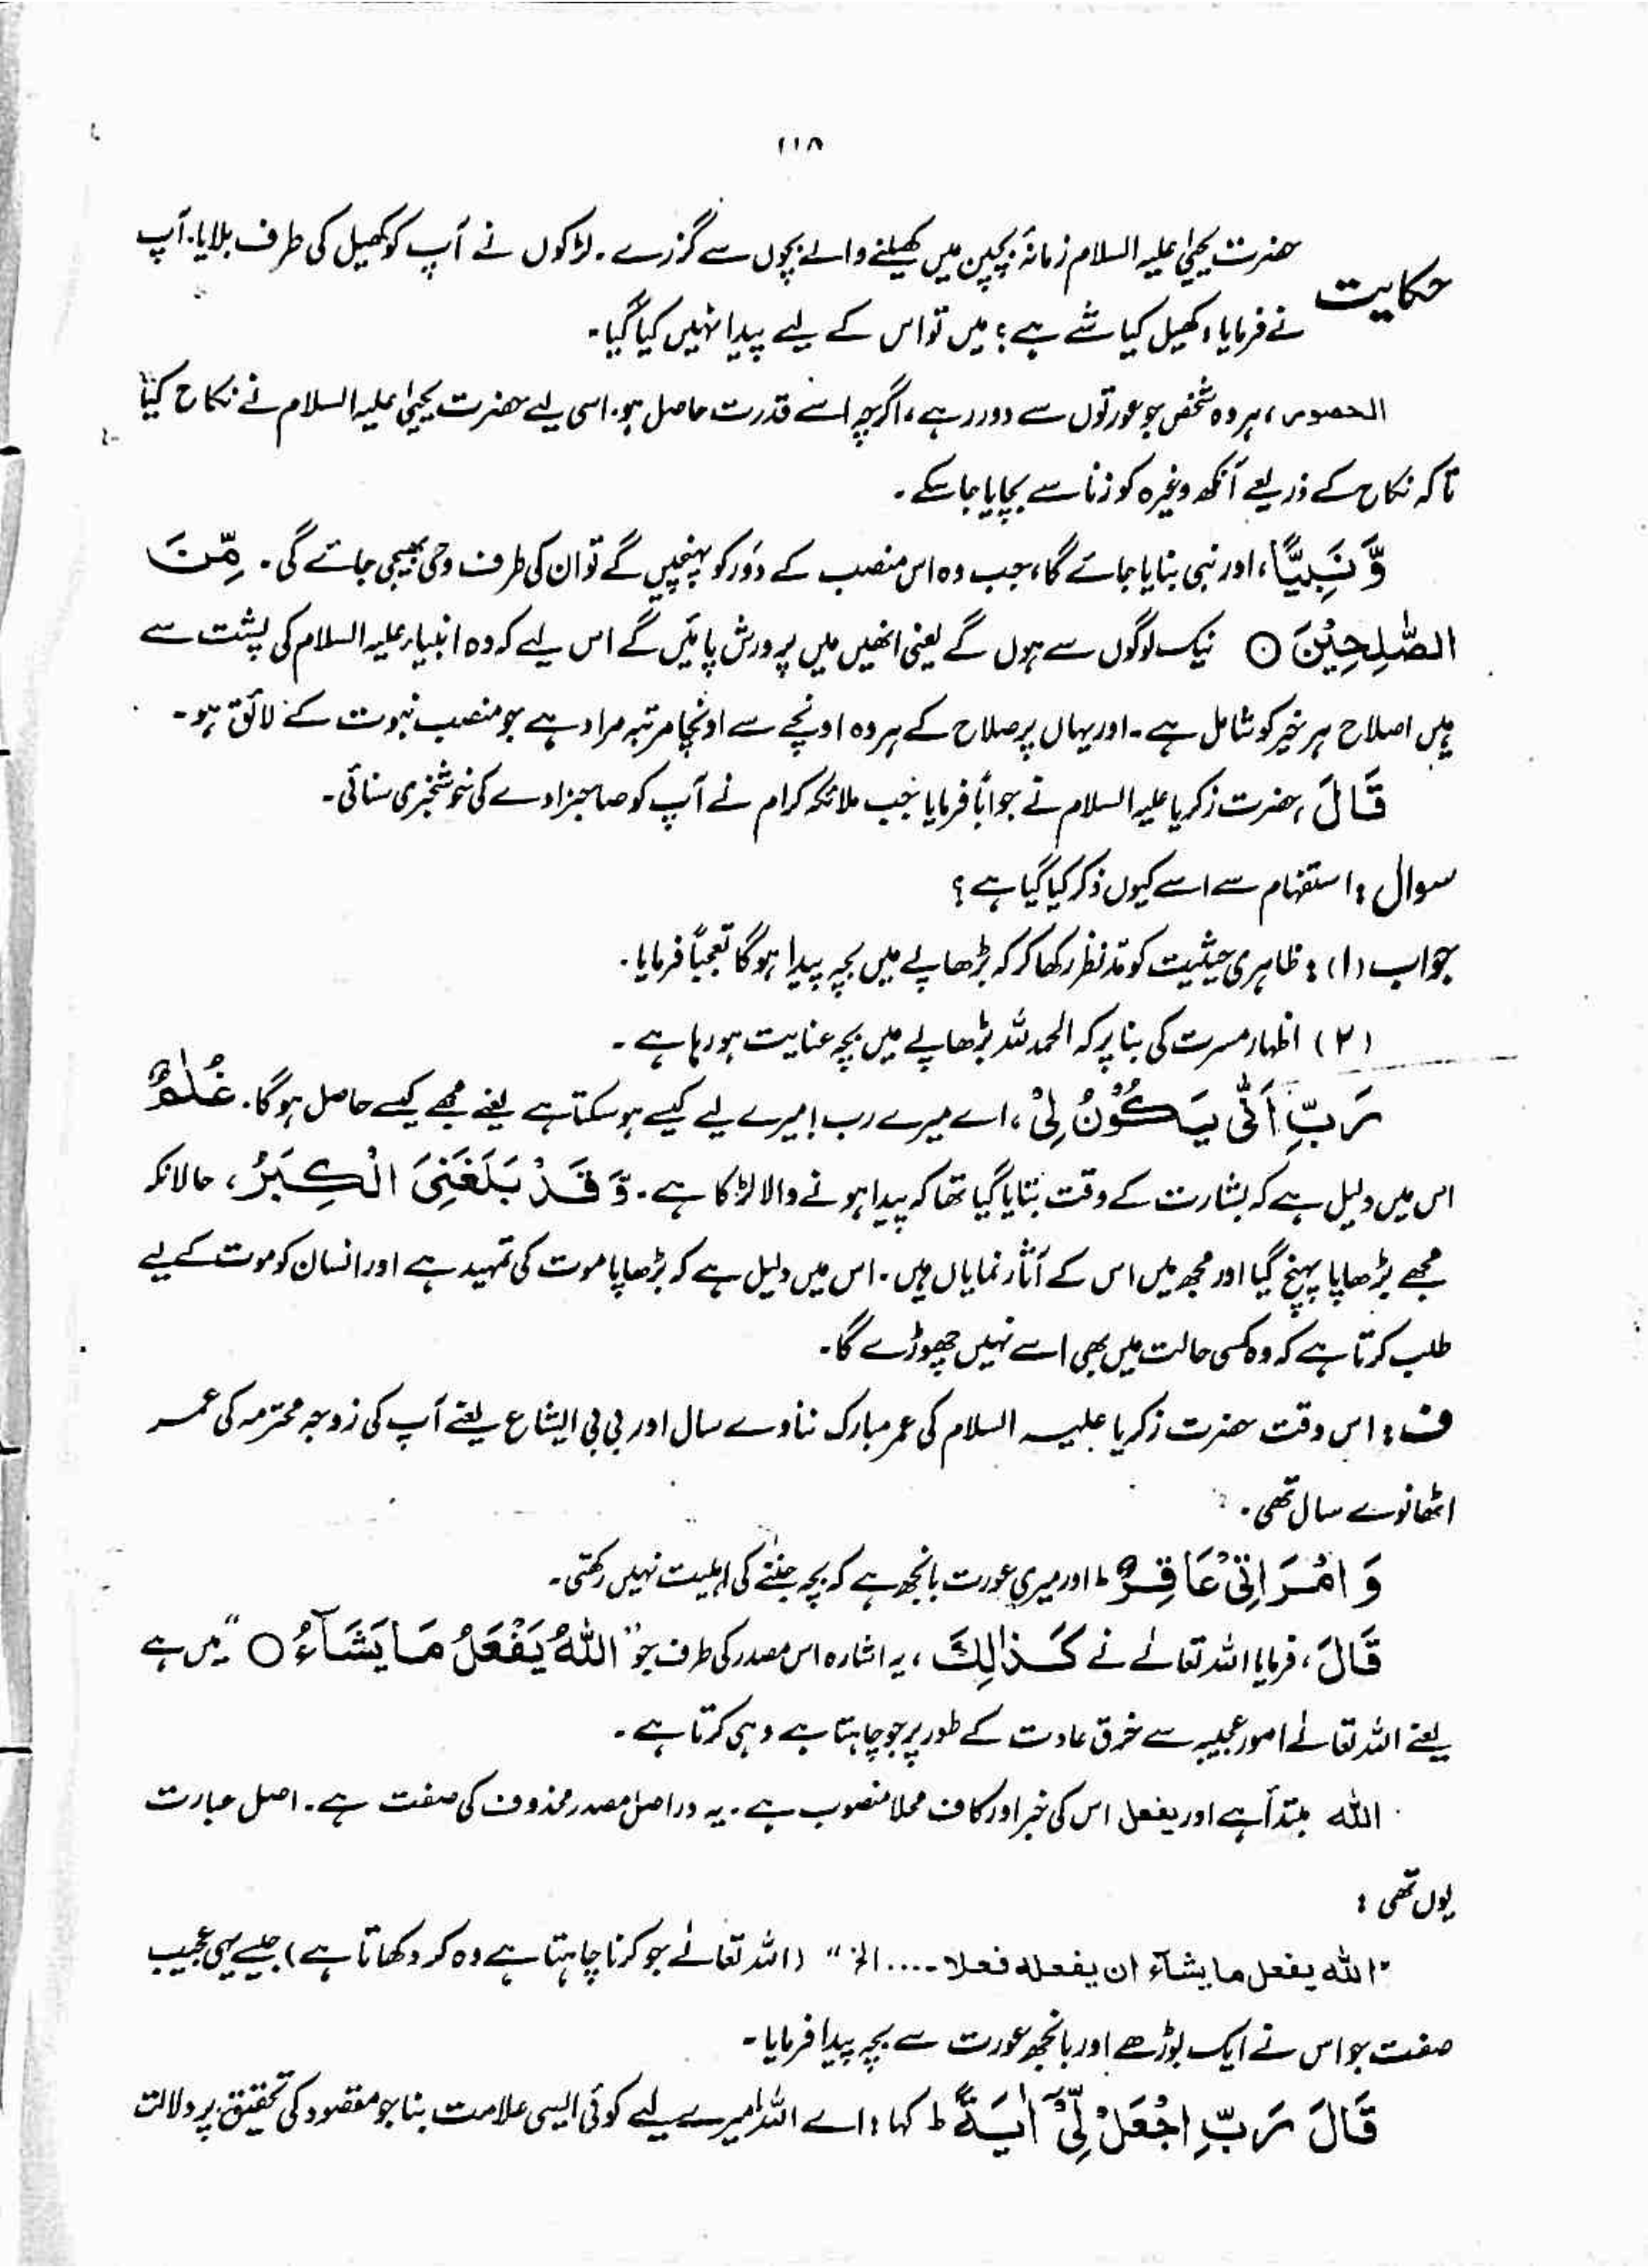 ۱۱۸
حکایت حضرت یحییٰ علیہ السلام زمانۂ بچپن میں کھیلنے والے بچوں سے گزرے۔ لڑکوں نے آپ کو کھیل کی طرف بلایا۔ آپ
نے فرمایا، کھیل کیا شے ہے؟ میں تو اس کے لیے پیدا نہیں کیا گیا۔
الحصور، ہر وہ شخص جو عورتوں سے دور رہے، اگرچہ اسے قدرت حاصل ہو۔ اسی لیے حضرت یحییٰ علیہ السلام نے نکاح کیا
تاکہ نکاح کے ذریعے آنکھ وغیرہ کو زنا سے بچایا جا سکے۔
وَّ نَبِیًّا، اور نبی بنایا جائے گا، جب وہ اس منصب کے دَور کو پہنچیں گے تو ان کی طرف وحی بھیجی جائے گی۔ مِّنَ
الصّٰلِحِیْنَ ○ نیک لوگوں سے ہوں گے یعنی انھیں میں پرورش پائیں گے اس لیے کہ وہ انبیاء علیہ السلام کی پشت سے
ہیں اصلاح ہر خیر کو شامل ہے۔ اور یہاں پر صلاح کے ہر وہ اونچے سے اونچا مرتبہ مراد ہے جو منصب نبوت کے لائق ہو۔
قَالَ، حضرت زکریا علیہ السلام نے جواباً فرمایا جب ملائکہ کرام نے آپ کو صاحبزادے کی خوشخبری سنائی۔
سوال: استفہام سے اسے کیوں ذکر کیا گیا ہے؟
جواب (۱): ظاہری حیثیت کو مدّ نظر رکھا کر کہ بڑھاپے میں بچہ پیدا ہو گا تعجباً فرمایا۔
(۲) اظہار مسرت کی بنا پر کہ الحمد للہ بڑھاپے میں بچہ عنایت ہو رہا ہے۔
رَبِّ اَنّٰی یَکُوْنُ لِیْ، اے میرے رب! میرے لیے کیسے ہو سکتا ہے یعنے مجھے کیسے حاصل ہو گا۔ غُلٰمٌ
اس میں دلیل ہے کہ بشارت کے وقت بتایا گیا تھا کہ پیدا ہونے والا لڑکا ہے۔ وَّ قَدْ بَلَغَنِیَ الْکِبَرُ، حالانکہ
مجھے بڑھاپا پہنچ گیا اور مجھ میں اس کے آثار نمایاں ہیں۔ اس میں دلیل ہے کہ بڑھاپا موت کی تمہید ہے اور انسان کو موت کے لیے
طلب کرتا ہے کہ وہ کسی حالت میں بھی اسے نہیں چھوڑے گا۔
ف: اس وقت حضرت زکریا علیہ السلام کی عمر مبارک ننانوے سال اور بی بی ایشاع یعنے آپ کی زوجہ محترمہ کی عمر
اٹھانوے سال تھی۔
وَ امْرَاَتِیْ عَاقِرٌ ط اور میری عورت بانجھ ہے کہ بچہ جننے کی اہلیت نہیں رکھتی۔
قَالَ، فرمایا اللہ تعالےٰ نے کَذٰلِکَ، یہ اشارہ اس مصدر کی طرف جو "اللّٰہُ یَفْعَلُ مَا یَشَآءُ ○" میں ہے
یعنے اللہ تعالےٰ امور عجیبہ سے خرق عادت کے طور پر جو چاہتا ہے وہی کرتا ہے۔
اللّٰہ مبتدأ ہے اور یفعل اس کی خبر اور کاف محلا منصوب ہے۔ یہ دراصل مصدر محذوف کی صفت ہے۔ اصل عبارت
یوں تھی:
"اللّٰہ یفعل ما یشآء ان یفعلہ فعلا ۔۔۔۔ الخ" (اللہ تعالےٰ جو کرنا چاہتا ہے وہ کر دکھاتا ہے) جیسے یہی عجیب
صفت جو اس نے ایک بوڑھے اور بانجھ عورت سے بچہ پیدا فرمایا۔
قَالَ رَبِّ اجْعَلْ لِّیْ اٰیَۃً ط کہا: اے اللہ! میرے لیے کوئی ایسی علامت بنا جو مقصود کی تحقیق پر دلالت